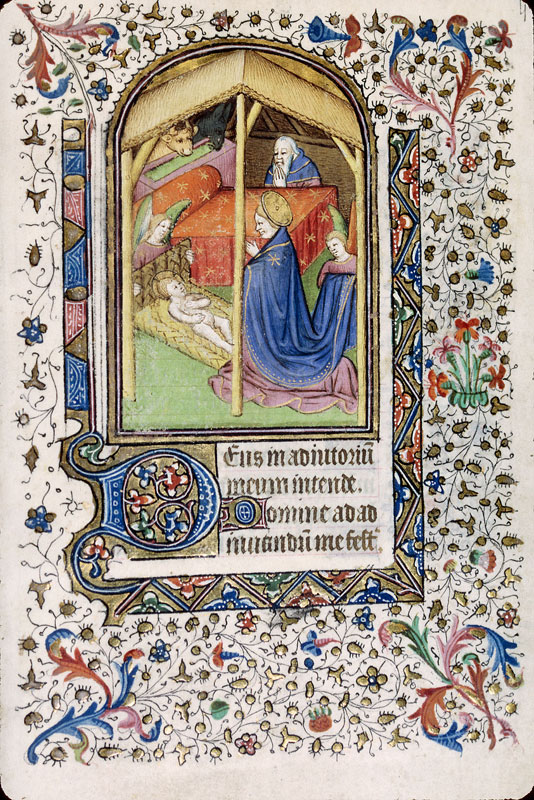 Deus in adiutoriū
meum intende.
Domine ad ad
iuuandū me fest.